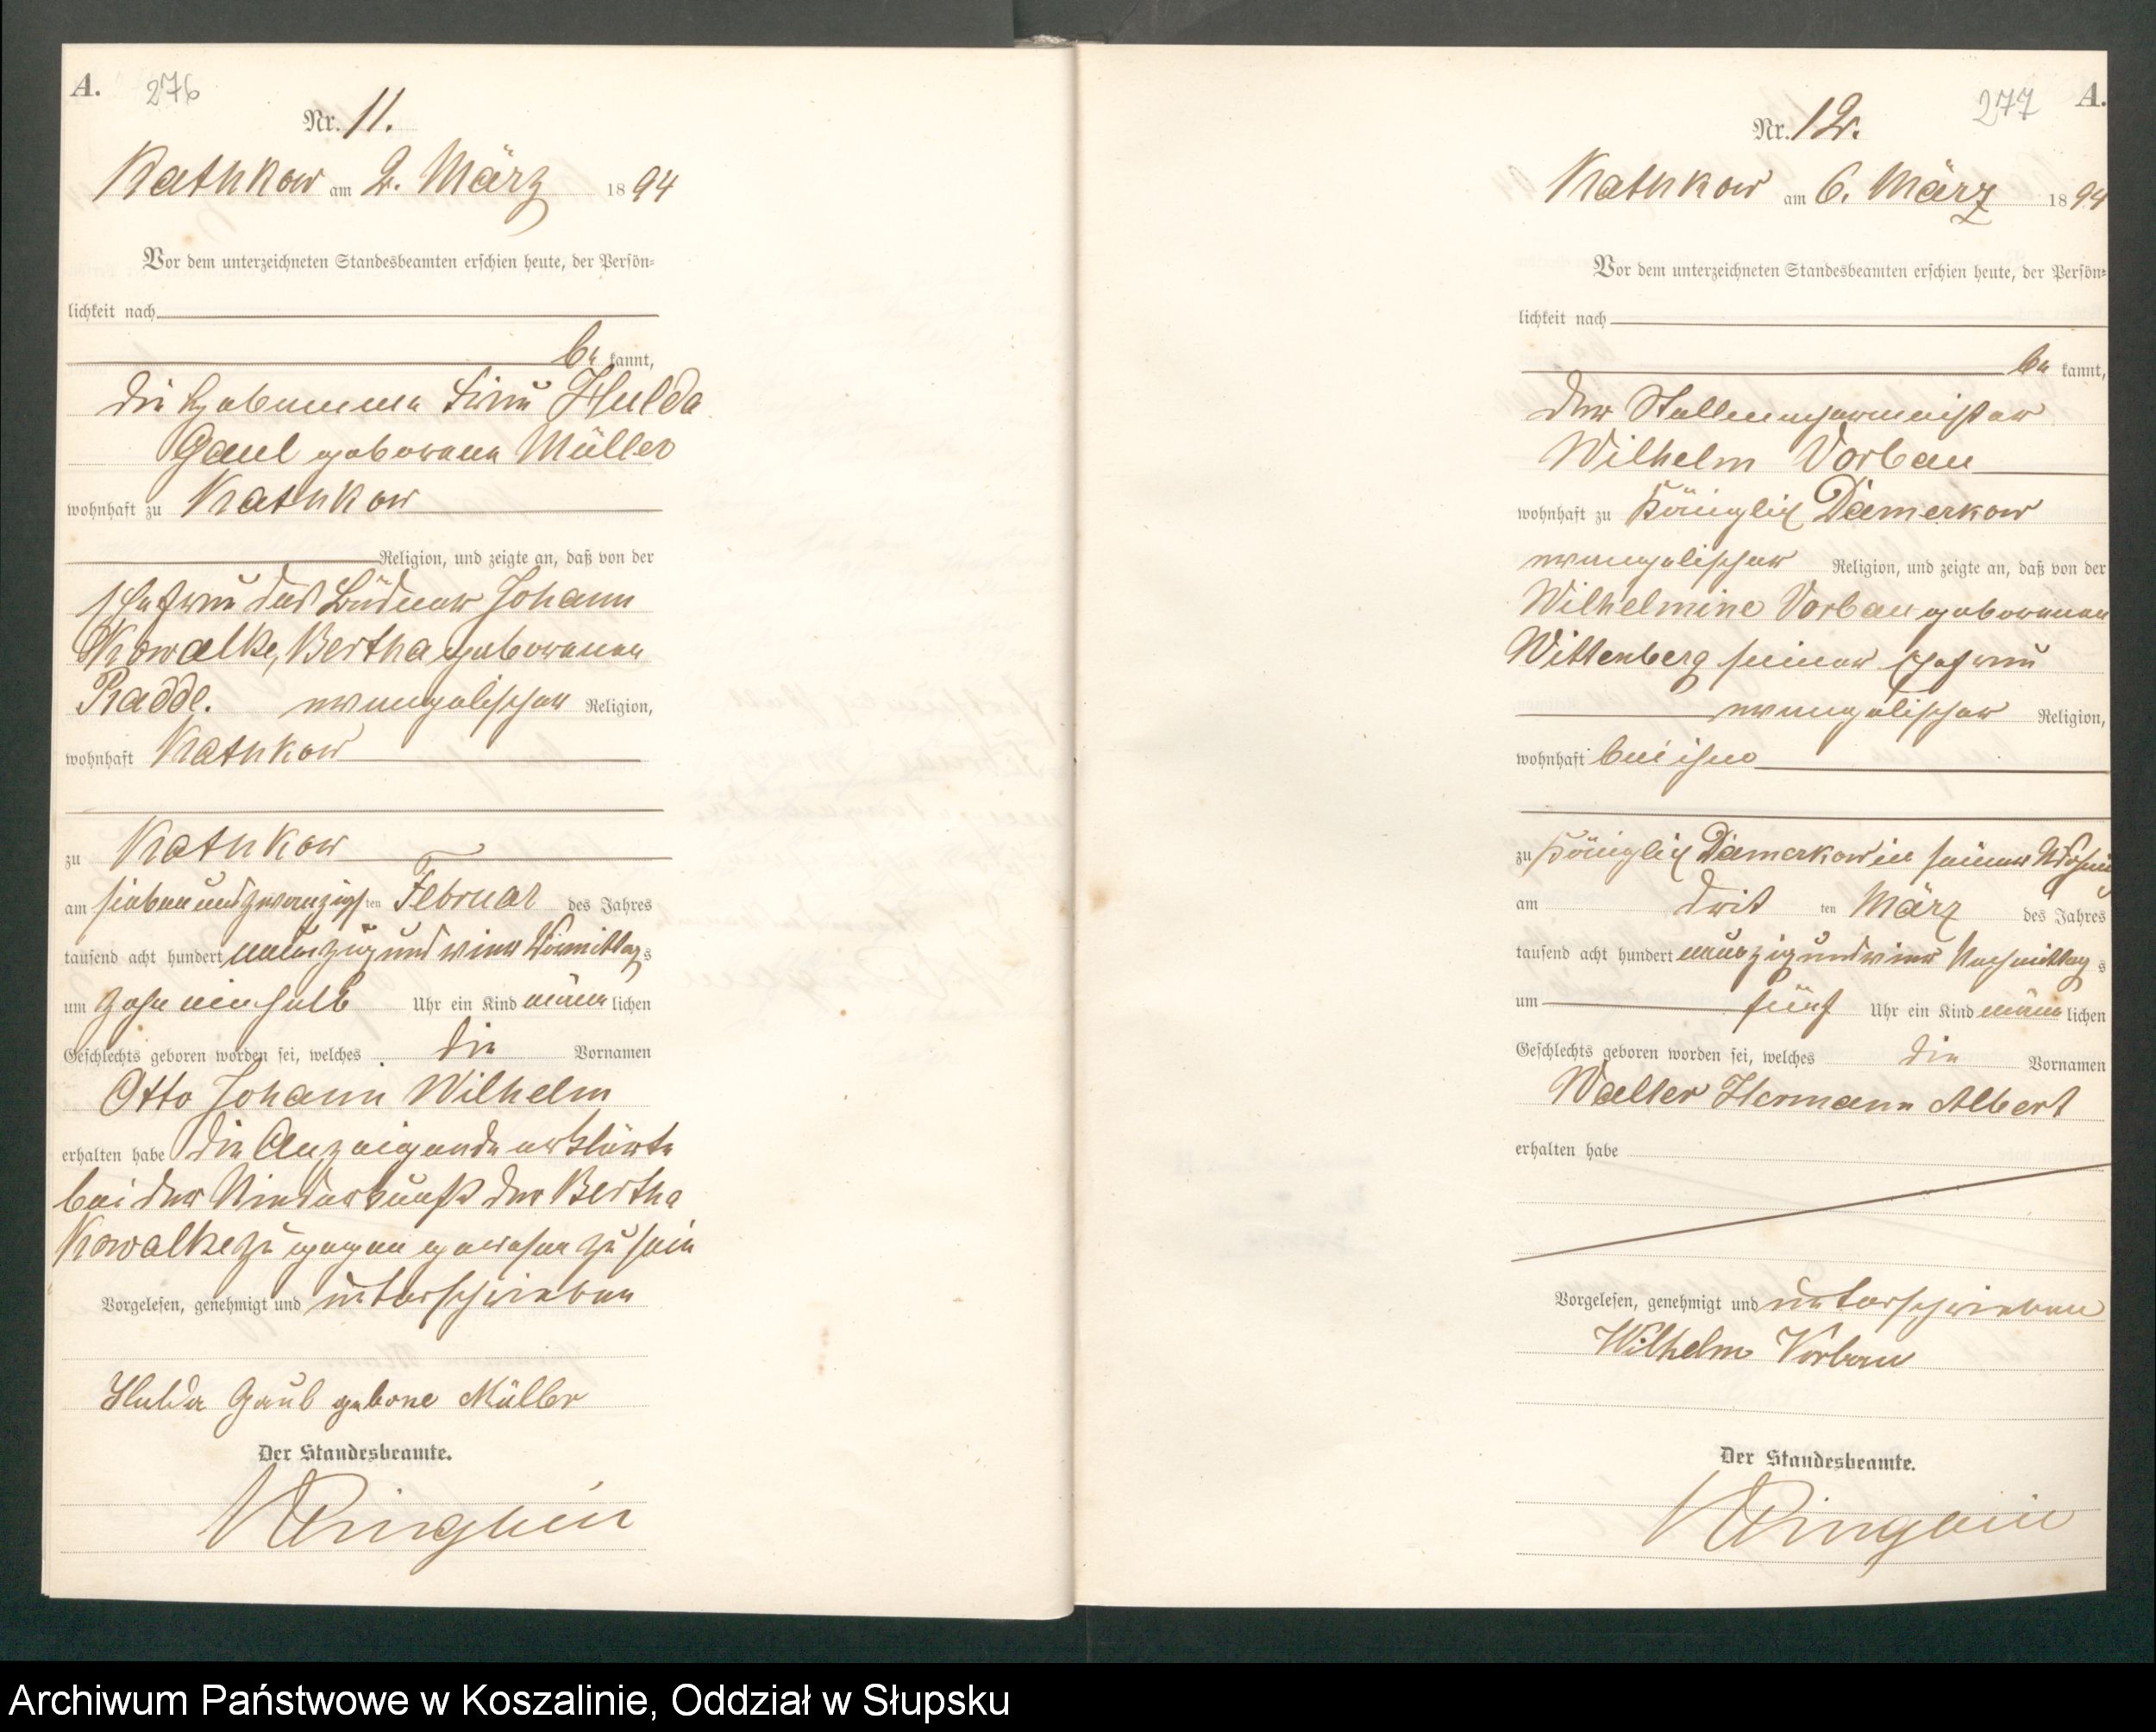 A. 276
Nr. 11.
Kathkow am 2. März 1894
Vor dem unterzeichneten Standesbeamten erschien heute, der Persön-
lichkeit nach
be kannt,
die Hebamme Frau Hulda
Gaul geborene Müller
wohnhaft zu Kathkow
Religion, und zeigte an, daß von der
Ehefrau des Büdner Johann
Kowalke, Bertha geborenen
Radde. evangelischer Religion,
wohnhaft Kathkow
zu Kathkow
am siebenundzwanzigsten Februar des Jahres
tausend acht hundert neunzig und vier Vormittags
um zehn einhalb Uhr ein Kind männlichen
Geschlechts geboren worden sei, welches die Vornamen
Otto Johann Wilhelm
erhalten habe die Anzeigende erklärte
bei der Niederkunft der Bertha
Kowalke zugegen gewesen zu sein
Vorgelesen, genehmigt und unterschrieben
Hulda Gaul geborne Müller
Der Standesbeamte.
277 A.
Nr. 12.
Kathkow am 6. März 1894
Vor dem unterzeichneten Standesbeamten erschien heute, der Persön-
lichkeit nach
be kannt,
der Stellmachermeister
Wilhelm Vorbau
wohnhaft zu Königlich Damerkow
evangelischer Religion, und zeigte an, daß von der
Wilhelmine Vorbau geborenen
Wittenberg seiner Ehefrau
evangelischer Religion,
wohnhaft bei ihm
zu Königlich Damerkow in seiner
am dritten März des Jahres
tausend acht hundert neunzig und vier Nachmittags
um fünf Uhr ein Kind männlichen
Geschlechts geboren worden sei, welches die Vornamen
Walter Hermann Albert
erhalten habe
Vorgelesen, genehmigt und unterschrieben
Wilhelm Vorbau
Der Standesbeamte.
Archiwum Państwowe w Koszalinie, Oddział w Słupsku